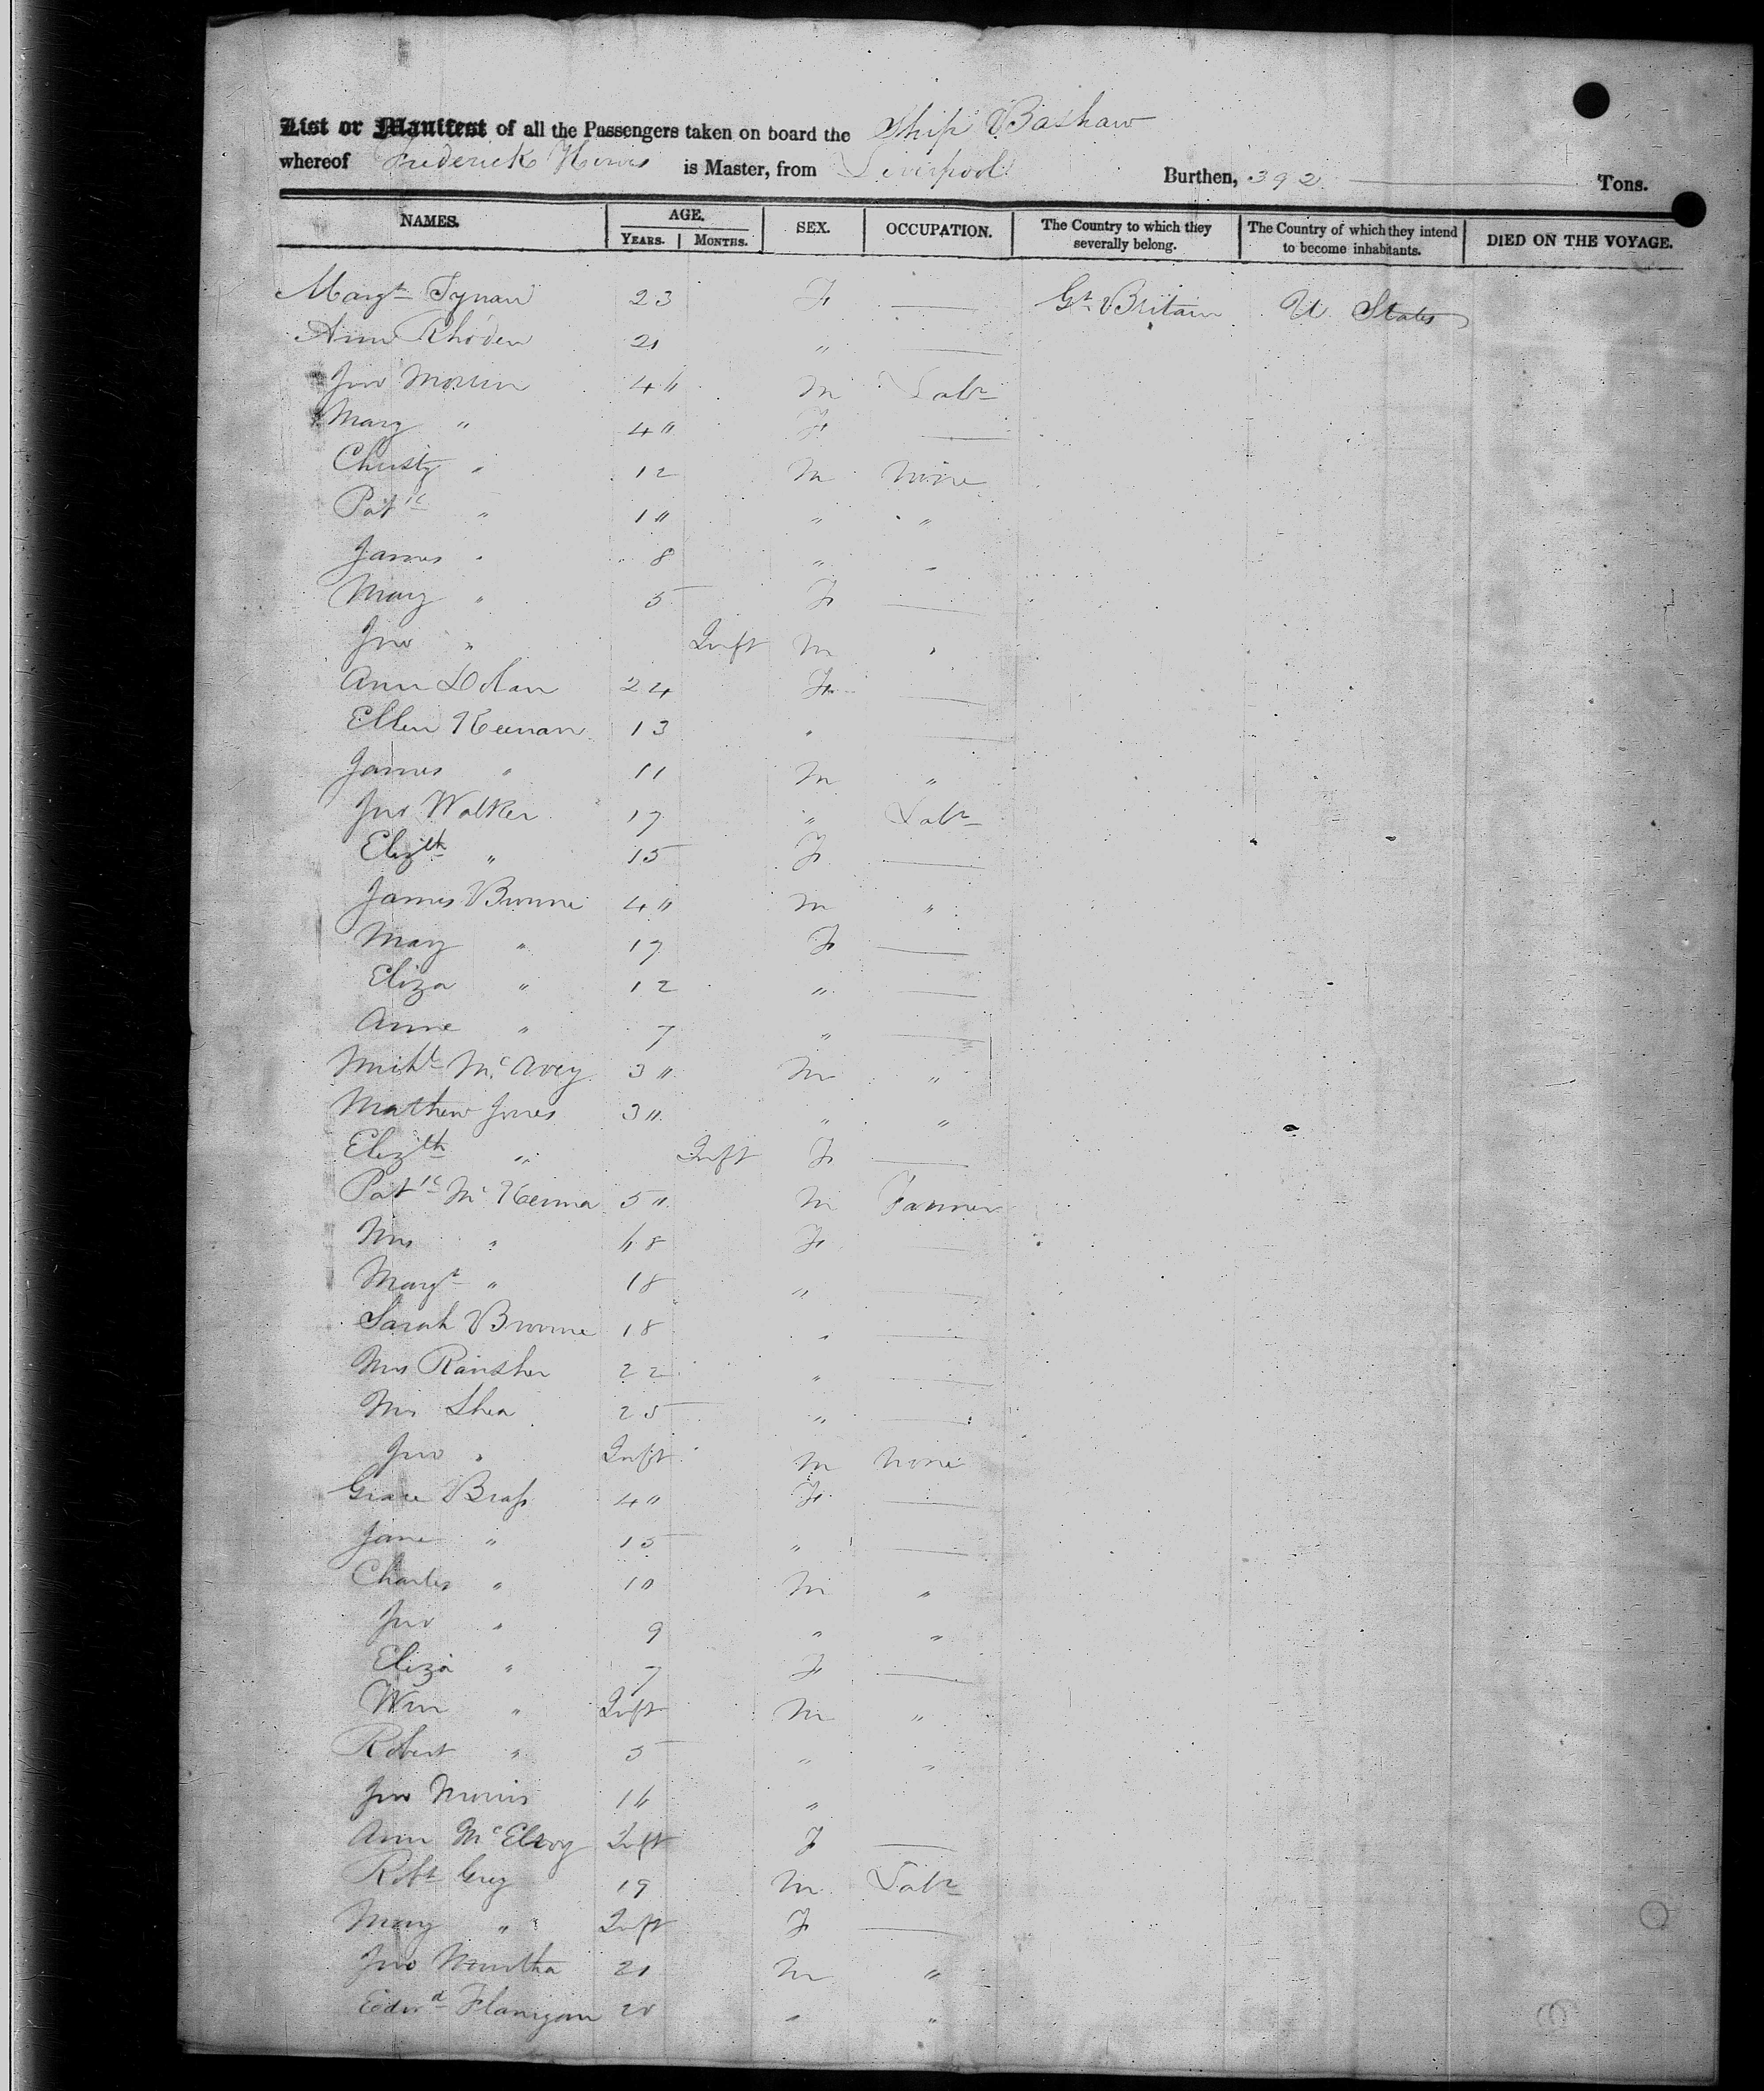 List or Manifest of all the Passengers taken on board the Ship Bashaw
whereof Frederick is Master, from Liverpool Burthen, 392 Tons.
NAMES. AGE. YEARS. MONTHS. SEX. OCCUPATION. The Country to which they severally belong. The Country of which they intend to become inhabitants. DIED ON THE VOYAGE.
Margt Tynan 23 F — Gt Britain U States
Ann Rhoden 21 " —
Jno 4" M Labr
Mary " 4" F —
Christy " 12 M None
Patk " 1" " "
James " 8 " "
Mary " 5 F —
Jno " Inft M "
Ann Dolan 24 F —
Ellen Keenan 13 " —
James " 11 M "
Jno Walker 17 " Labr
Elizth " 15 F —
James Browne 4" M "
Mary " 17 F —
Eliza " 12 " —
Anne " 7 " —
Michl McAvey 3" M "
Mathew Jones 3" " "
Elizth " Inft F —
Patk McKenna 5" M Farmer
Mrs " 48 F —
Margt " 18 " —
Sarah Browne 18 " —
Mrs 22 " —
Mrs Shea 25 " —
Jno " Inft M None
Grace Brass 4" F —
Jane " 15 " —
Charles " 10 M "
Jno " 9 " "
Eliza " 7 F —
Wm " Inft M "
Robert " 5 " "
Jno Morris 14 "
Ann McElroy Inft F —
Robt Grey 19 M Labr
Mary " Inft F —
Jno Murtha 21 M "
Edwd Flanigan 20 " "